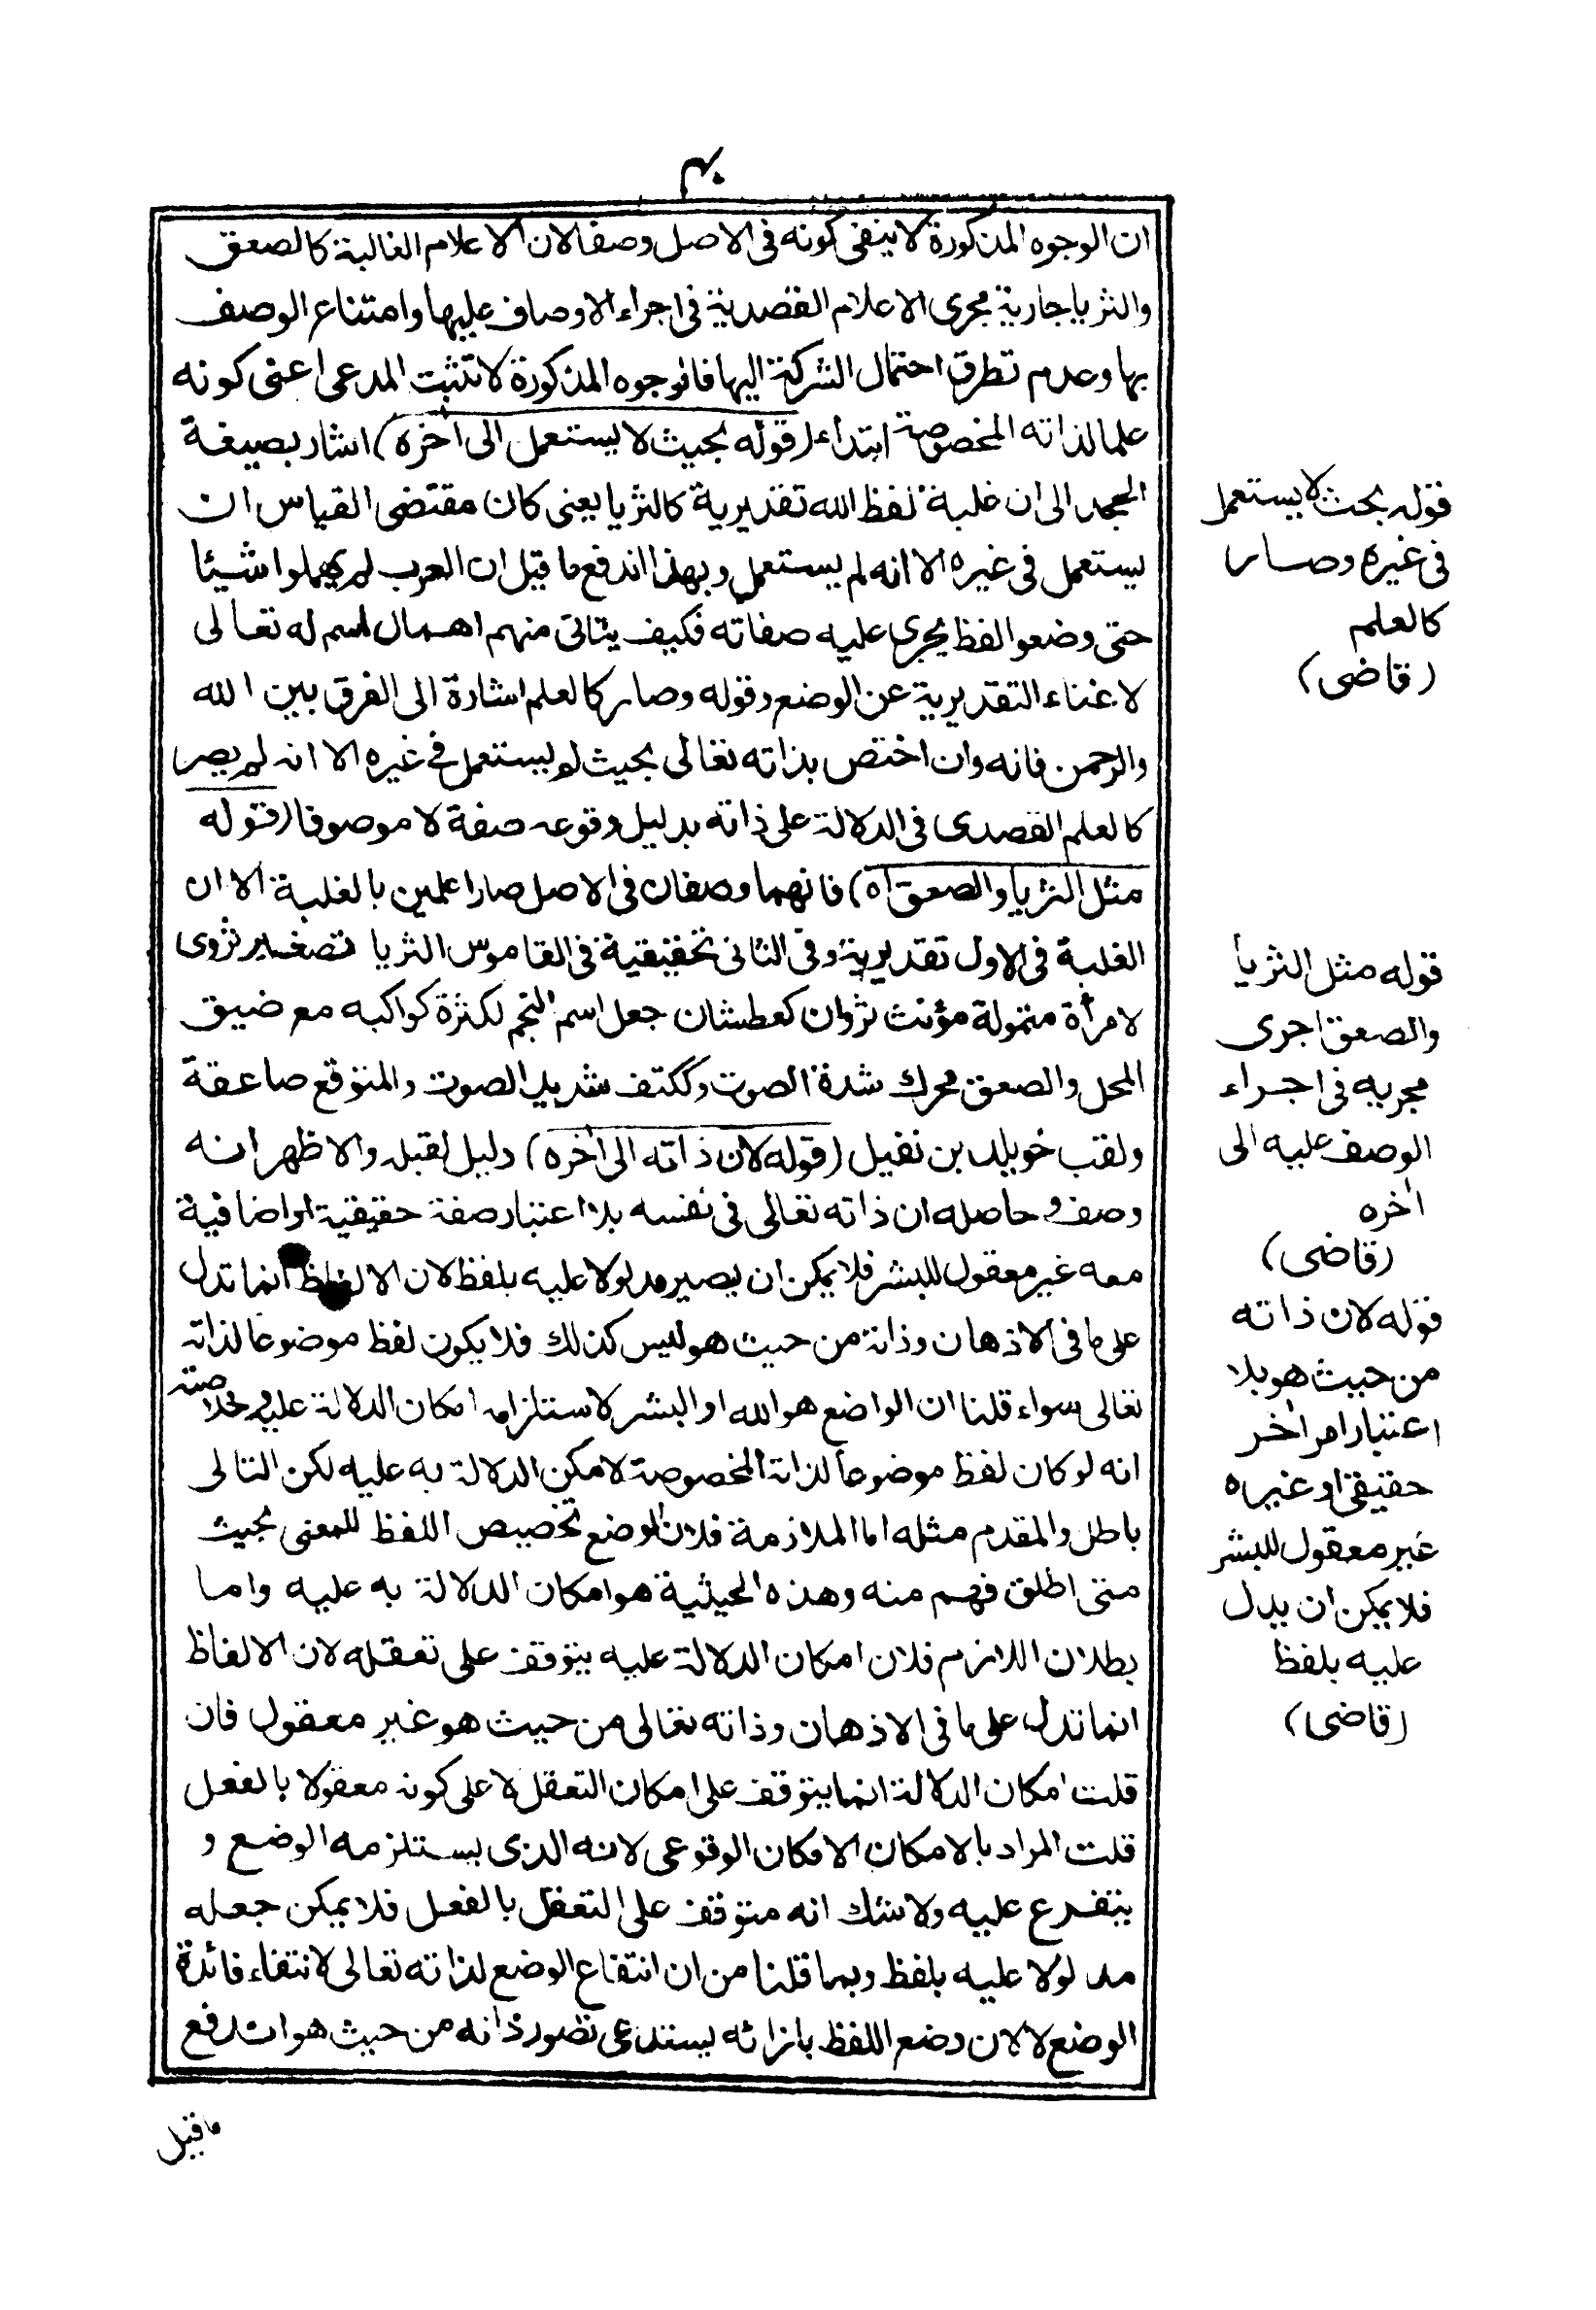 ٤٠
ان الوجوه المذكورة لا ينفى كونه فى الاصل وصفا لان الاعلام الغالبة كالصعق
والثريا جارية مجرى الاعلام القصدية فى اجراء الاوصاف عليها وامتناع الوصف
بها وعدم تطرق احتمال الشركة اليها فالوجوه المذكورة لا تثبت المدعى اعنى كونه
علما لذاته المخصوصة ابتداء (قوله بحيث لا يستعمل الى اخره) اشار بصيغة
الى ان غلبة لفظ الله تقديرية كالثريا يعنى كان مقتضى القياس ان
يستعمل فى غيره الا انه لم يستعمل وبهذا اندفع ما قيل ان العرب لم يهملوا شيئا
حتى وضعوا لفظ يجرى عليه صفاته فكيف يتاتى منهم اهمال اسم له تعالى
لاغناء التقديرية عن الوضع وقوله وصار كالعلم اشارة الى الفرق بين الله
والرحمن فانه وان اختص بذاته تعالى بحيث لم يستعمل فى غيره الا انه لم يصر
كالعلم القصدى فى الدلالة على ذاته بدليل وقوعه صفة لا موصوفا (قوله
مثل الثريا والصعق اه) فانهما وصفان فى الاصل صارا علمين بالغلبة الا ان
الغلبة فى الاول تقديرية وفى الثانى تحقيقية فى القاموس الثريا تصغير ثروى
لامرأة متمولة مؤنث ثروان كعطشان جعل اسم النجم لكثرة كواكبه مع ضيق
المحل والصعق محرك شدة الصوت وككتف شديد الصوت والمتوقع صاعقة
ولقب خويلد بن نفيل (قوله لان ذاته الى اخره) دليل لقبله والاظهر انه
وصف وحاصله ان ذاته تعالى فى نفسه بلا اعتبار صفة حقيقية او اضافية
معه غير معقول للبشر فلا يمكن ان يصير مدلولا عليه بلفظ لان الالفاظ انما تدل
على ما فى الاذهان وذاته من حيث هو ليس كذلك فلا يكون لفظ موضوعا لذاته
تعالى سواء قلنا ان الواضع هو الله او البشر لاستلزامه امكان الدلالة عليه وخلاصته
انه لو كان لفظ موضوعا لذاته المخصوصة لامكن الدلالة به عليه لكن التالى
باطل والمقدم مثله اما الملازمة فلان الوضع تخصيص اللفظ للمعنى بحيث
متى اطلق فهم منه وهذه الحيثية هو امكان الدلالة به عليه واما
بطلان اللازم فلان امكان الدلالة عليه يتوقف على تعقله لان الالفاظ
انما تدل على ما فى الاذهان وذاته تعالى من حيث هو غير معقول فان
قلت امكان الدلالة انما يتوقف على امكان التعقل لا على كونه معقولا بالفعل
قلت المراد بالامكان الامكان الوقوعى لانه الذى يستلزمه الوضع و
يتفرع عليه ولا شك انه متوقف على التعقل بالفعل فلا يمكن جعله
مدلولا عليه بلفظ وبما قلنا من ان انتفاع الوضع لذاته تعالى لانتفاء فائدة
الوضع لا لان وضع اللفظ بازائه يستدعى تصور ذاته من حيث هو اندفع
ما قيل
قوله بحيث لا يستعمل
فى غيره وصار
كالعلم
(قاضى)
قوله مثل الثريا
والصعق اجرى
مجريه فى اجراء
الوصف عليه الى
اخره
(قاضى)
قوله لان ذاته
من حيث هو بلا
اعتبار امر اخر
حقيقى او غيره
غير معقول للبشر
فلا يمكن ان يدل
عليه بلفظ
(قاضى)